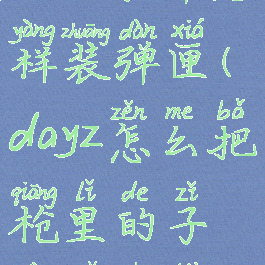 yàng zhuāng dàn xiá
样装弹匣(
zěn me bǎ
dayz怎么把
qiāng lǐ de zǐ
枪里的子